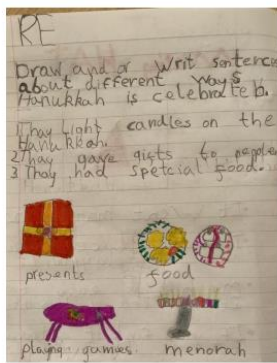 RE
Draw and or writ sentences
about different ways
Hanukkah is celebrateb.
1 Thay light candles on the
Hanukkah.
2 Thay gave gists to people
3 Thay had spetcial food.
presents
food
playing games
menorah